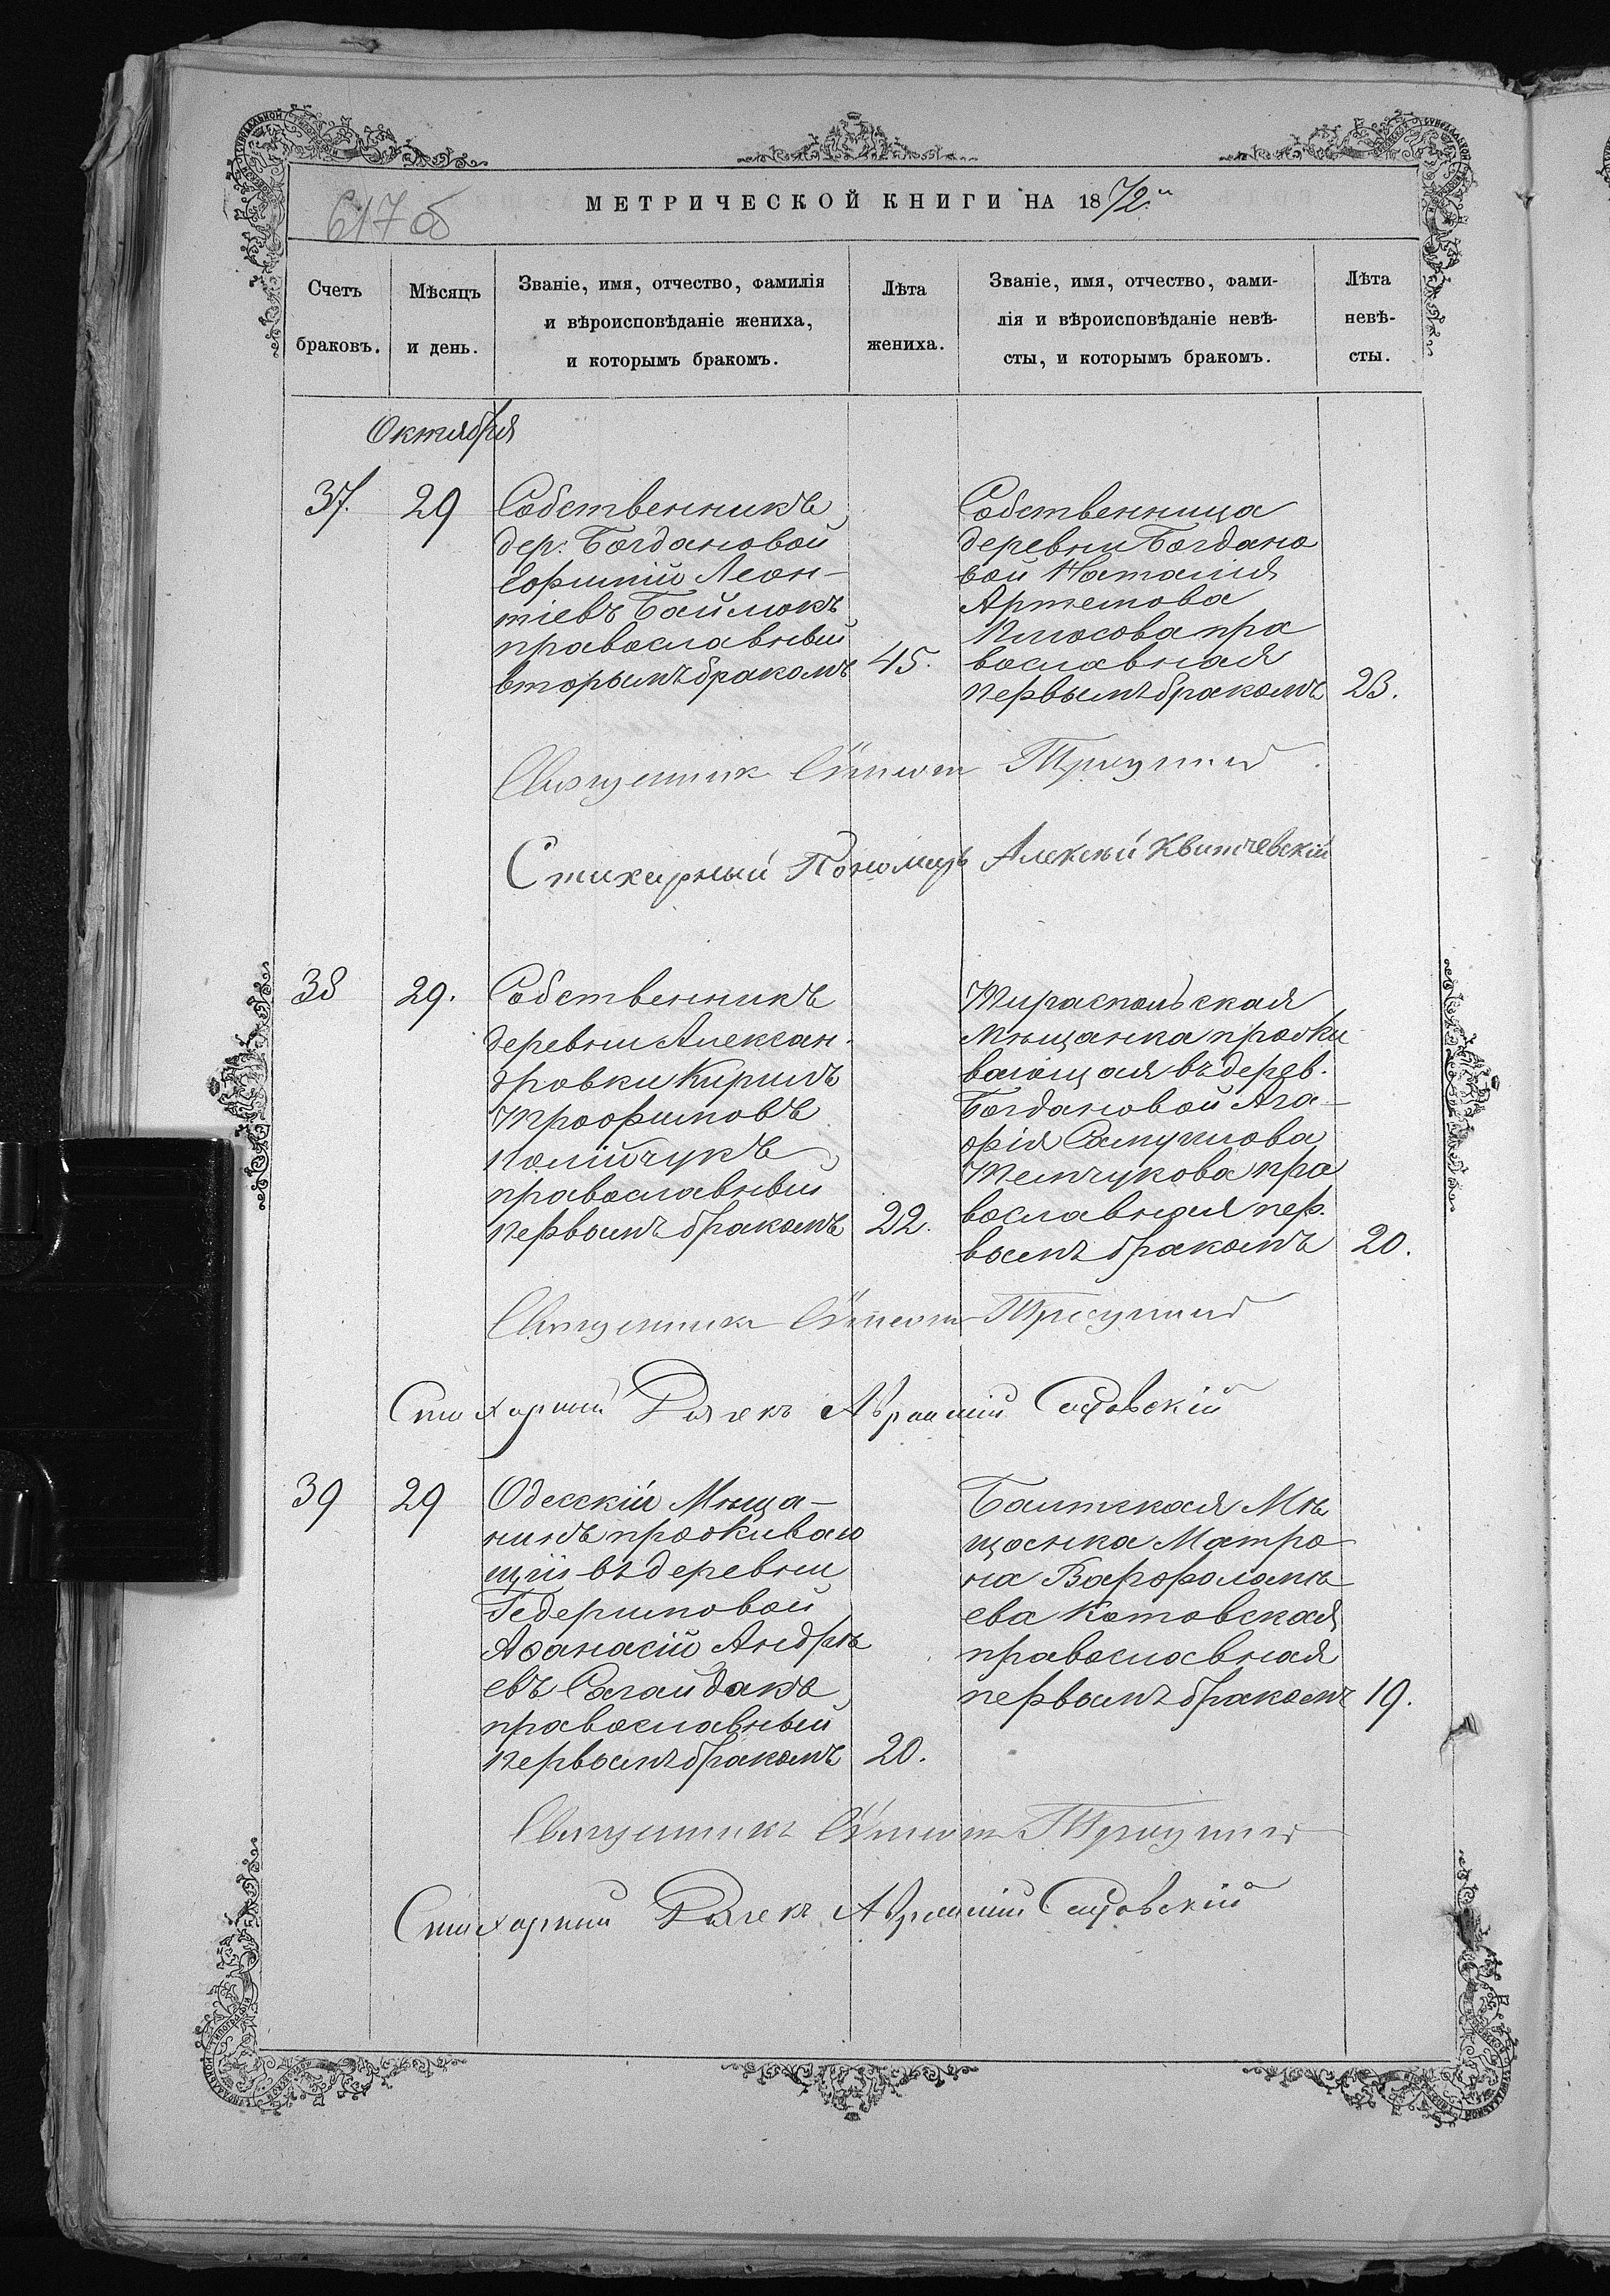 617 об
МЕТРИЧЕСКОЙ КНИГИ НА 1872й
Счетъ браковъ.
Мѣсяцъ и день.
Званіе, имя, отчество, фамилія
и вѣроисповѣданіе жениха,
и которымъ бракомъ.
Лѣта жениха.
Званіе, имя, отчество, фами-
лія и вѣроисповѣданіе невѣ-
сты, и которымъ бракомъ.
Лѣта невѣ-
сты.
Октября
37.
29
Собственникъ
дер. Богдановой
Леон-
тіевъ Баймокъ
православный
вторымъ бракомъ
45.
Собственница
деревни Богдано
вой Наталия
Артемова
Плюсова пра
вославная
первымъ бракомъ
23.
Священник
Стихарный Пономарь Алексѣй Квитчевскій
38
29.
Собственникъ
деревни Алексан-
дровки Кирилъ
Трофимовъ
Полійчукъ
православный
первымъ бракомъ
22.
Тираспольская
мѣщанка прожи
вающая въ дерев.
Богдановой Ага-
фія Самуилова
Темчукова пра
вославная пер.
вымъ бракомъ
20.
Священникъ
Стихарный Дьячекъ Садовскій
39
29
Одесскій Мѣща-
нинъ проживаю
щій въ деревни
Гедеримовой
Афанасій Андрѣ
евъ Сагайдакъ
православный
первымъ бракомъ
20.
Балтская Мѣ
щанка Матро
на Варфоломѣ
ева Котовская
православная
первымъ бракомъ
19.
Священникъ
Стихарный Дьячекъ Садовскій